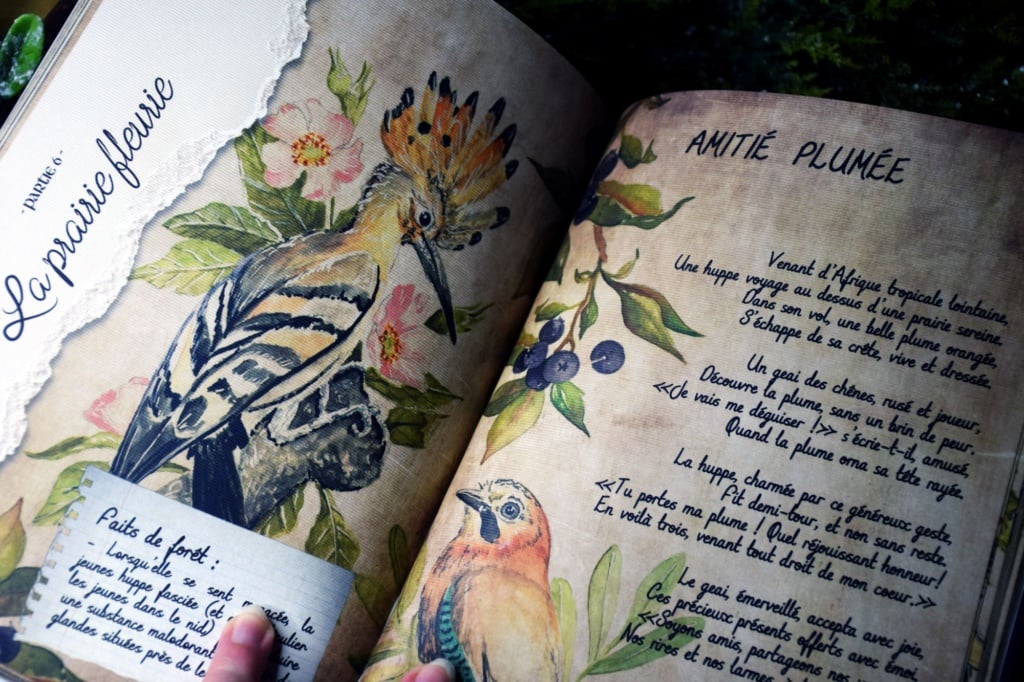 - partie 6 -
La prairie fleurie
Faits de forêt :
- Lorsqu'elle se sent menacée, la
jeunes huppe fasciée (et
les jeunes dans le nid)
une substance malodorante
glandes situées près de
AMITIÉ PLUMÉE
Venant d'Afrique tropicale lointaine,
Une huppe voyage au dessus d'une prairie sereine.
Dans son vol, une belle plume orangée,
S'échappe de sa crête, vive et dressée.
Un geai des chênes, rusé et joueur,
Découvre la plume, sans un brin de peur.
«Je vais me déguiser !» s'écrie-t-il, amusé,
Quand la plume orna sa tête rayée.
La huppe, charmée par ce généreux geste,
Fit demi-tour, et non sans reste,
«Tu portes ma plume ! Quel réjouissant honneur!
En voilà trois, venant tout droit de mon coeur.»
Le geai, émerveillé, accepta avec joie,
Ces précieux présents offerts avec émoi,
«Soyons amis, partageons nos
Nos rires et nos larmes,